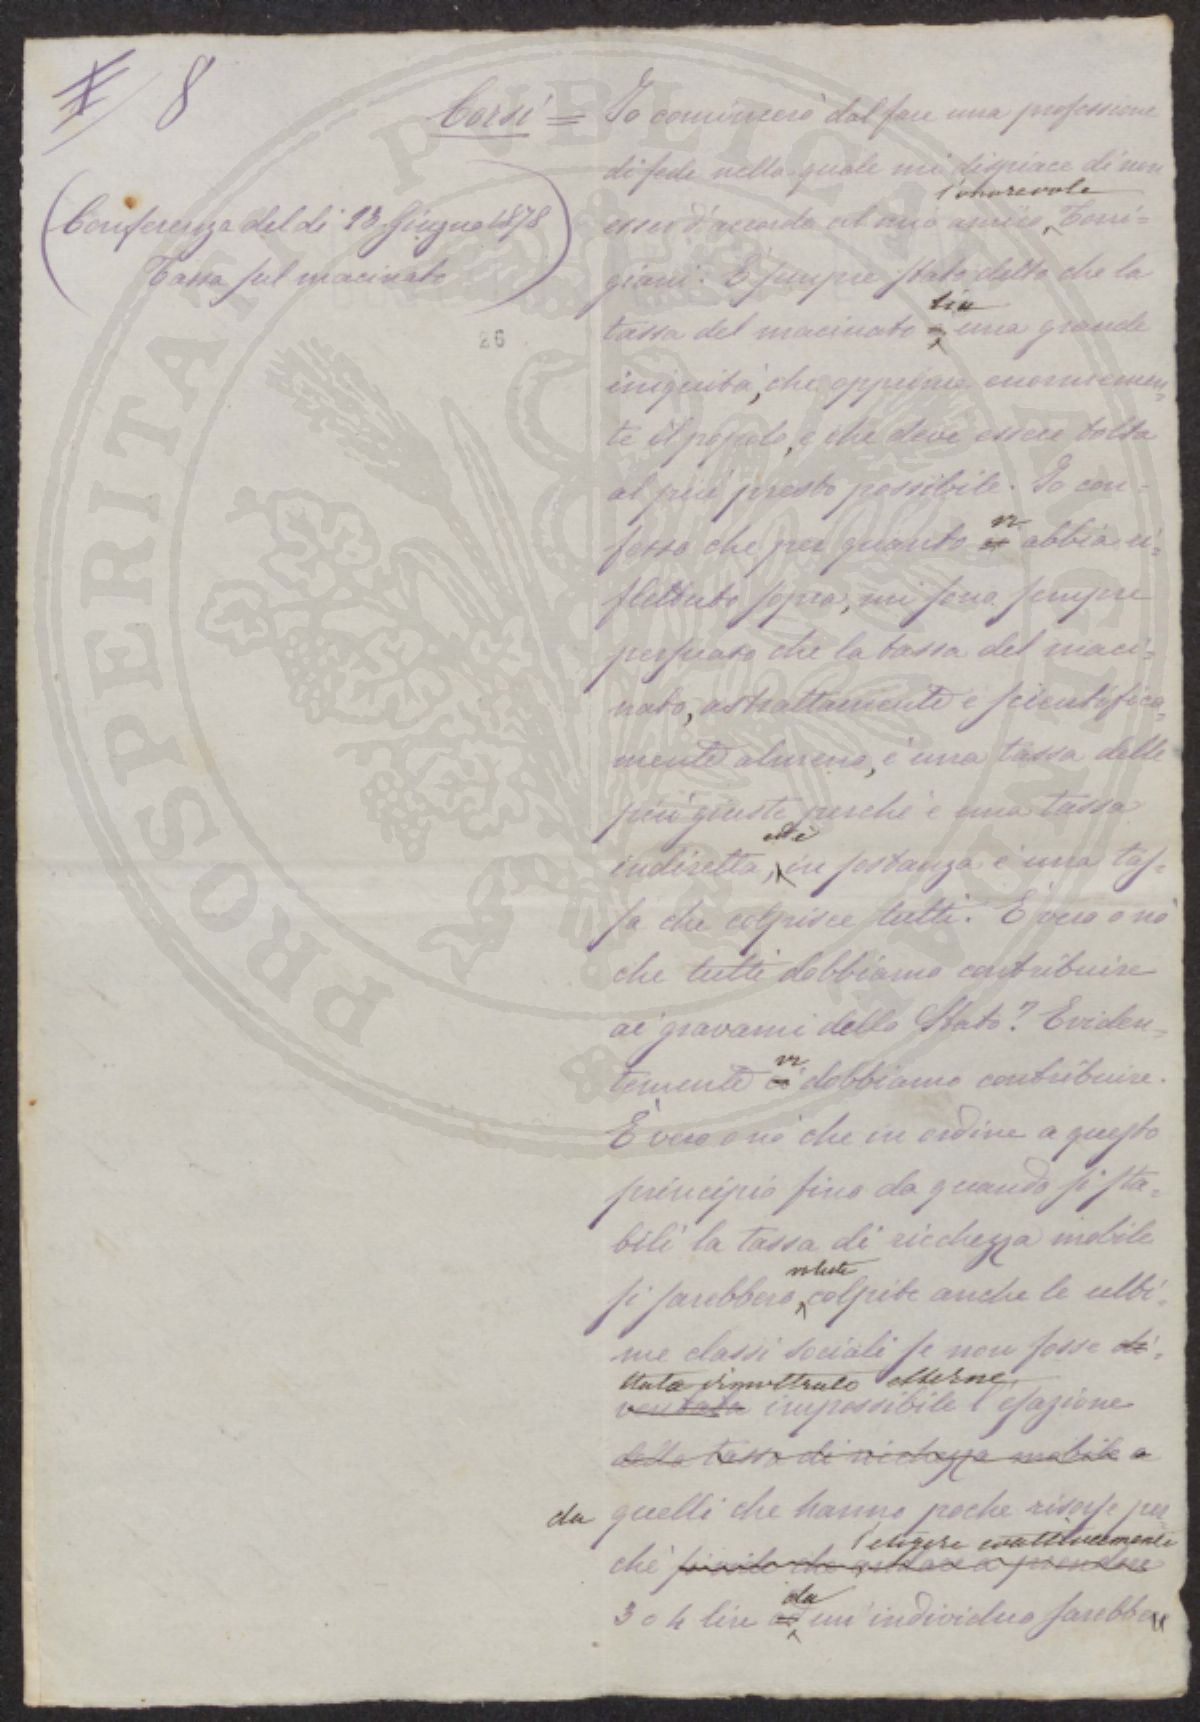 8
(Conferenza del dì 13 Giugno 1878
Tassa sul macinato)
26
Corsi = Io comincerò dal fare una professione
di fede nella quale mi dispiace di non
l'onorevole
esser d'accordo col mio amico, Torri-
giani. È sempre stato detto che la
sia
tassa del macinato una grande
iniquità, che opprime enormemen-
te il popolo, e che deve essere tolta
al più presto possibile. Io con-
vi
fesso che per quanto ci abbia ri-
flettuto sopra, mi sono sempre
persuaso che la tassa del maci-
nato, astrattamente e scientifica-
mente almeno, è una tassa delle
più giuste perché è una tassa
indiretta, in sostanza è una tas-
sa che colpisce tutti. È vero o nò
che tutti dobbiamo contribuire
ai gravami dello Stato? Eviden-
vi
temente ci dobbiamo contribuire.
È vero o nò che in ordine a questo
principio fino da quando si sta-
bilì la tassa di ricchezza mobile
volute
si sarebbero colpite anche le ulti-
me classi sociali se non fosse di-
stata dimostrato esserne
ventata impossibile l'esazione
della tassa di ricchezza mobile a
da quelli che hanno poche risorse per-
l'esigere esattivamente
ché
da
3 o 4 lire ad un'individuo sarebbe
PROSPERITAS PUBLICA AUGENDA